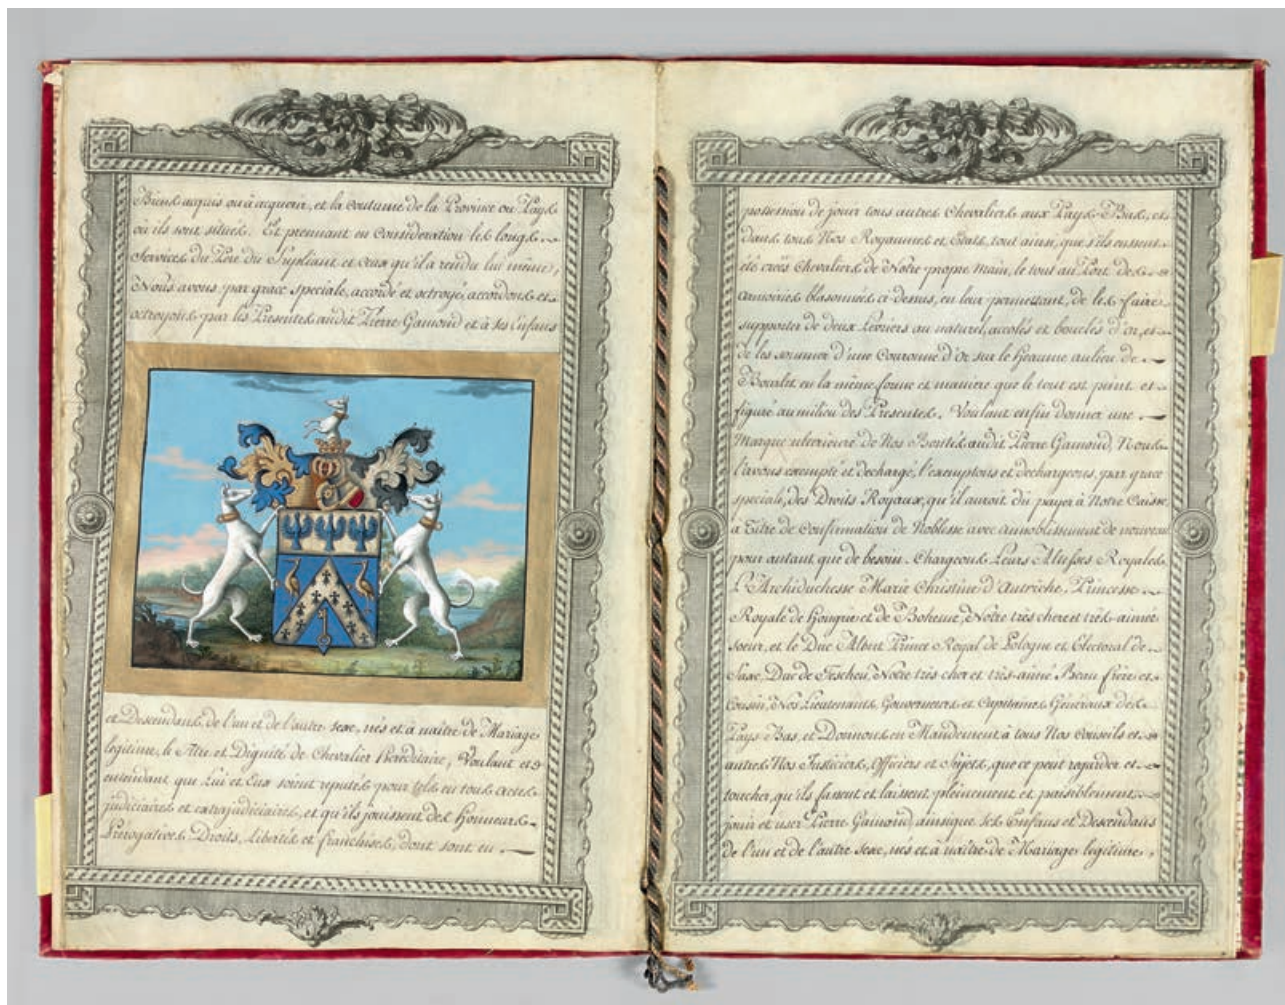 Biens acquis ou à acquerir, et la coutume de la Province ou Pays
où ils sont situés. Et prennant en Consideration les longs
services du Pere du Supliant et ceux qu'il a rendu lui même,
Nous avons, par grace speciale, accordé et octroyé, accordons et
octroyons par les Presentes audit Pierre Gamond et à ses Enfans
et Descendans de l'un et de l'autre sexe, nés et à naître de Mariage
legitime, le Titre et Dignité de Chevalier Héréditaire, Voulant et
entendant que Lui et Eux soient reputés pour tels en tous actes
judiciaires et extrajudiciaires, et qu'ils jouissent des honneurs
Prérogatives, Droits, Libertés et franchises, dont sont en
possession de jouir tous autres Chevaliers aux Pays-Bas, et
dans tous Nos Royaumes et Etats, tout ainsi, que s'ils eussent
été créés Chevaliers de Notre propre main, le tout au Port des
armoiries blasonnées ci-dessus, en leur permettant, de les faire
supporter de deux Levriers au naturel, accolés et bouclés d'or, et
de les sommer d'une Couronne d'or sur le heaume au lieu de
Bourlet en la même forme et maniere que le tout est peint et
figuré au milieu des Presentes. Voulant enfin donner une
Marque ulterieure de Nos Bontés audit Pierre Gamond, Nous
l'avons exempté et dechargé, l'exemptons et dechargeons, par grace
speciale, des Droits Royaux, qu'il auroit dû payer à Notre Caisse
à Titre de Confirmation de Noblesse avec annoblissement de nouveau
pour autant que de besoin. Chargeons Leurs Altesses Royales
L'Archiduchesse Marie Christine d'Autriche, Princesse
Royale de Hongrie et de Boheme, Notre très chere et très-aimée
soeur, et le Duc Albert Prince Royal de Pologne et Electoral de
Saxe, Duc de Teschen, Notre très cher et très-aimé Beau frère et
Cousin, Nos Lieutenants, Gouverneurs et Capitaines Généraux des
Pays-Bas, et Donnons en Mandement à tous Nos Conseils et
autres Nos Justiciers, Officiers et Sujets, que ce peut regarder et
toucher, qu'ils fassent et laissent pleinement et paisiblement
jouir et user Pierre Gamond, ainsique ses Enfans et Descendans
de l'un et de l'autre sexe, nés et à naître de Mariage legitime,